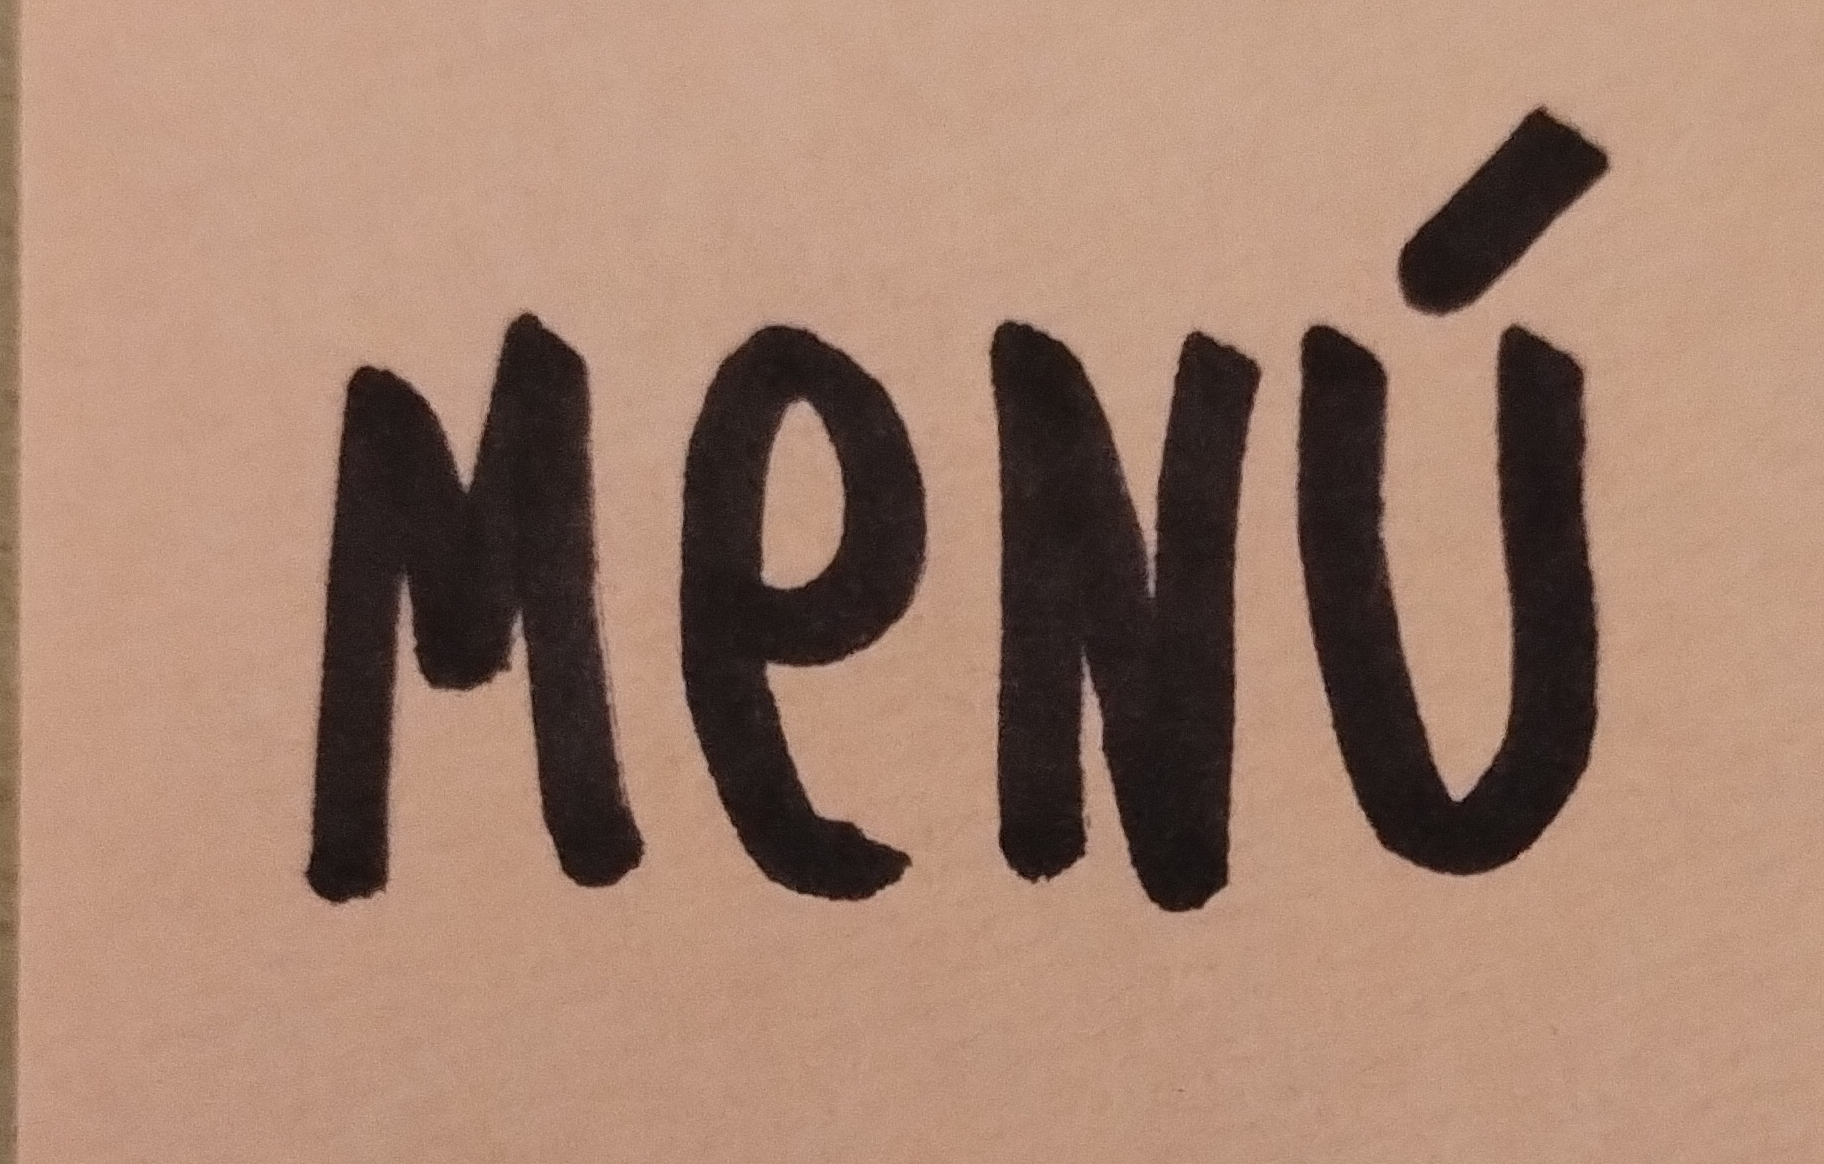 MeNÚ